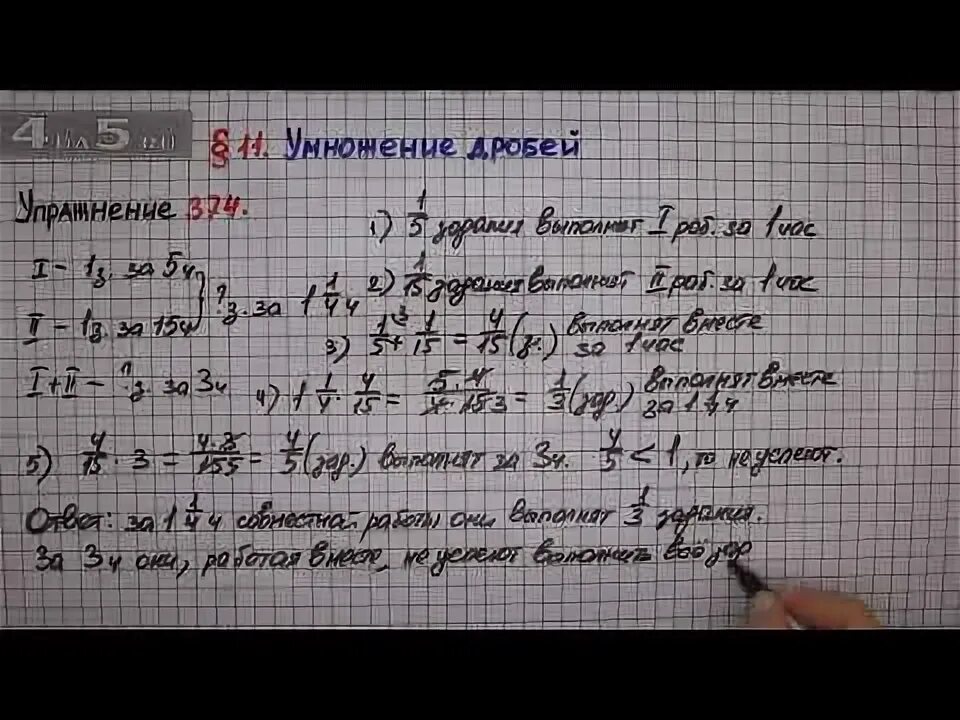 § 11. Умножение дробей
Упражнение 374.
I – 1з. за 5ч
II – 1з. за 15ч
} ? з. за 1 1/4 ч
I+II – ? з. за 3ч
1) 1/5 задания выполнит I раб. за 1 час
2) 1/15 задания выполнит II раб. за 1 час
3) 1/5 + 1/15 = 4/15 (з.) выполнят вместе за 1 час
4) 1 1/4 · 4/15 = 5·4/4·15 3 = 1/3 (зад.) выполнят вместе за 1 1/4 ч
5) 4/15 · 3 = 4·3/15 5 = 4/5 (зад.) выполнят за 3ч. 4/5 < 1, то не успеют.
Ответ: за 1 1/4 ч совместной работы они выполнят 1/3 задания.
За 3ч они, работая вместе, не успеют выполнить всё зад